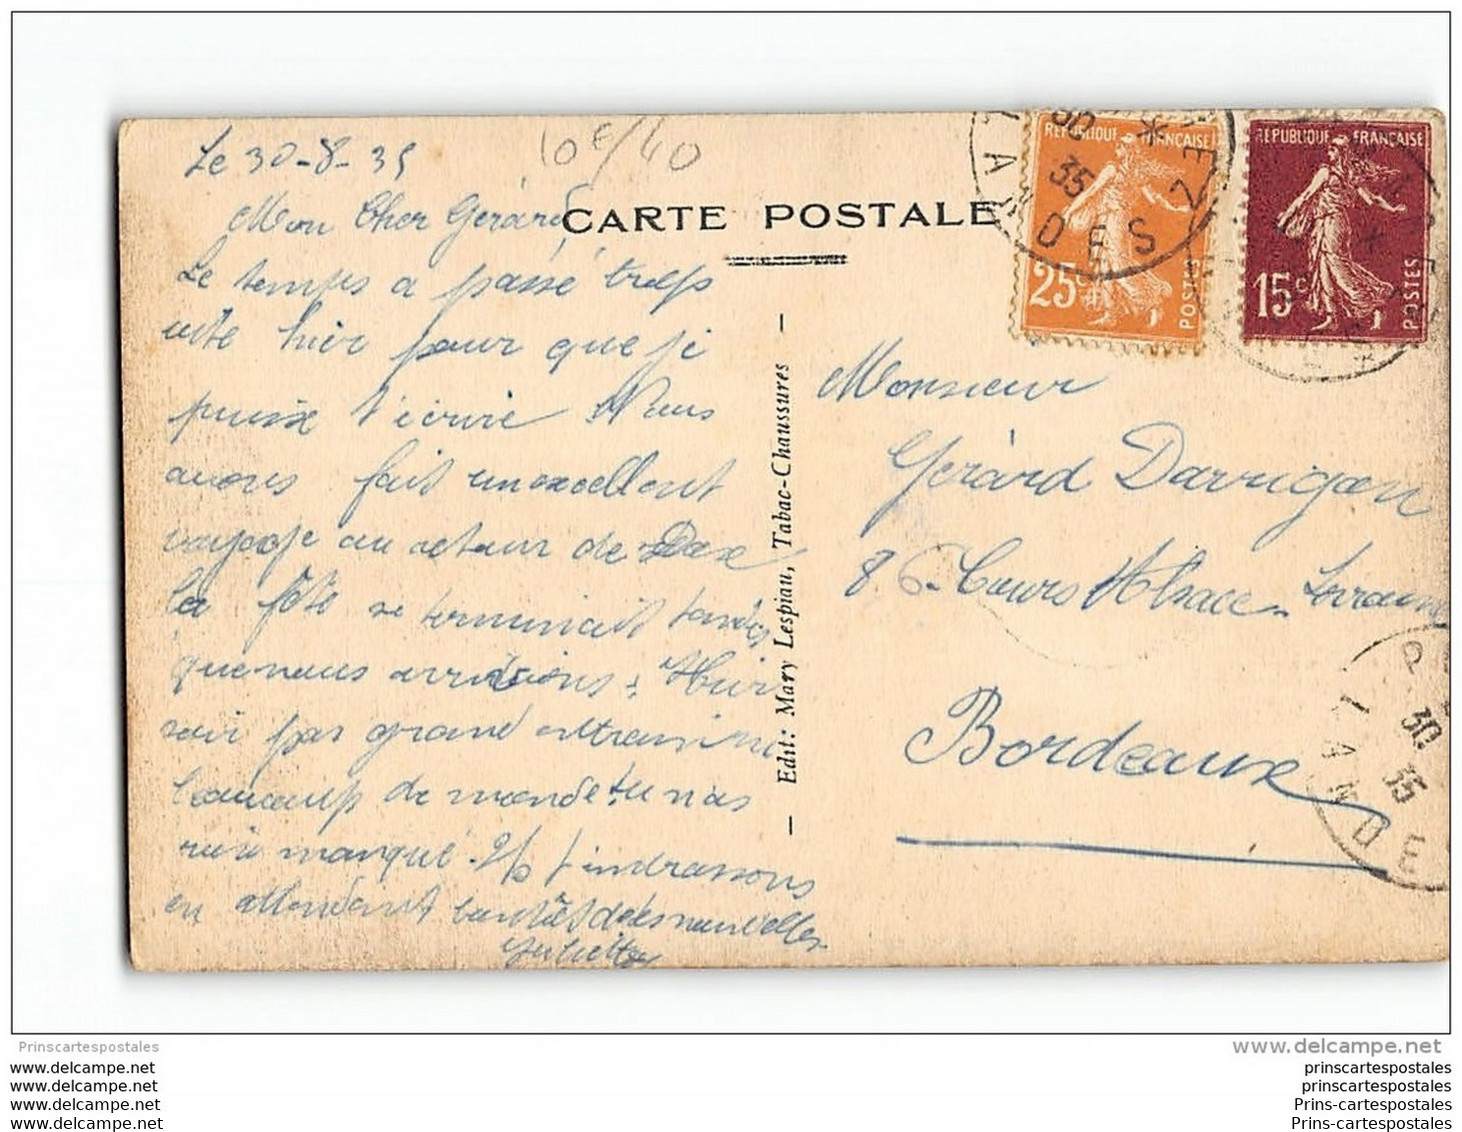 Le 30-8-35
10€/40
Mon Cher Gérard
CARTE POSTALE
Le temps a passé trop
vite hier pour que je
puisse t'écrire Nous
avons fait un excellent
voyage au retour de Dax
la fête se terminait tandis
que nous arrivions. Hier
soir pas grand entrain ni
beaucoup de monde tu n'as
rien manqué.
en attendant bientôt de tes nouvelles
Juliette
Edit: Mary Lespiau, Tabac-Chaussures
RÉPUBLIQUE FRANÇAISE
25c
POSTES
RÉPUBLIQUE FRANÇAISE
15c
POSTES
30
35
LANDES
Monsieur
Gérard Darrigan
86 - Cours Alsace - Lorraine
Bordeaux
30
35
LANDE
Prinscartespostales
www.delcampe.net
www.delcampe.net
www.delcampe.net
www.delcampe.net
www.delcampe.net
prinscartespostales
prinscartespostales
Prins-cartespostales
Prins-cartespostales